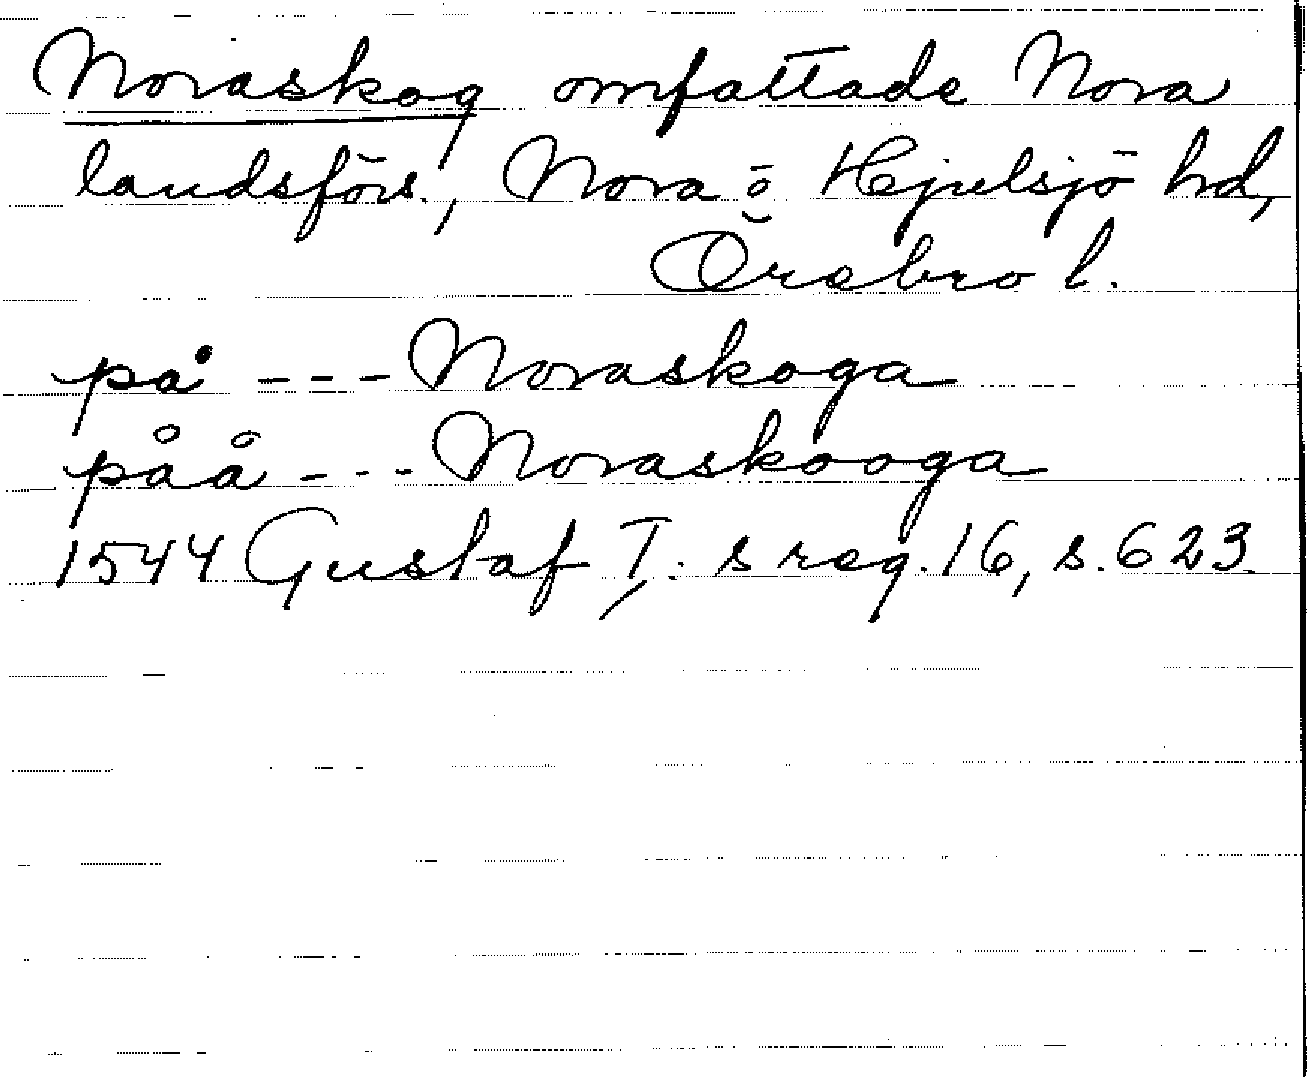 Noraskog omfattade Nora
landsförs., Nora o Hjulsjö hd,
Örebro l.
på --- Noraskoga
påå --- Noraskooga
1544 Gustaf I: s reg. 16, s. 623.